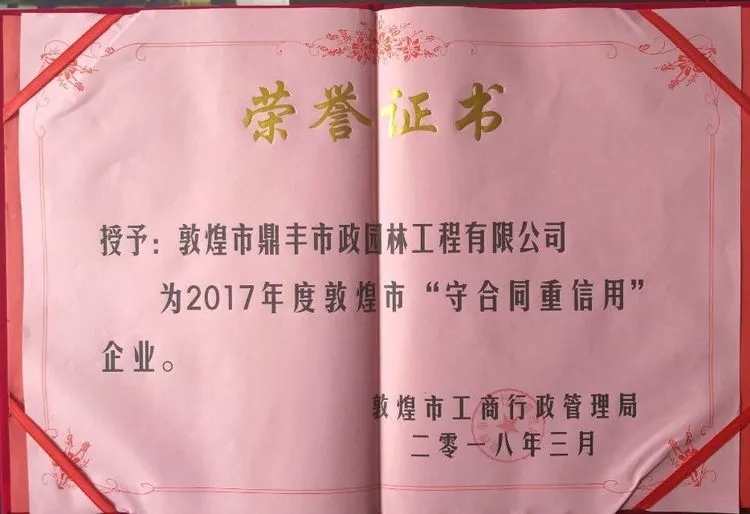 荣誉证书
授予：敦煌市鼎丰市政园林工程有限公司
为2017年度敦煌市“守合同重信用”
企业。
敦煌市工商行政管理局
二零一八年三月